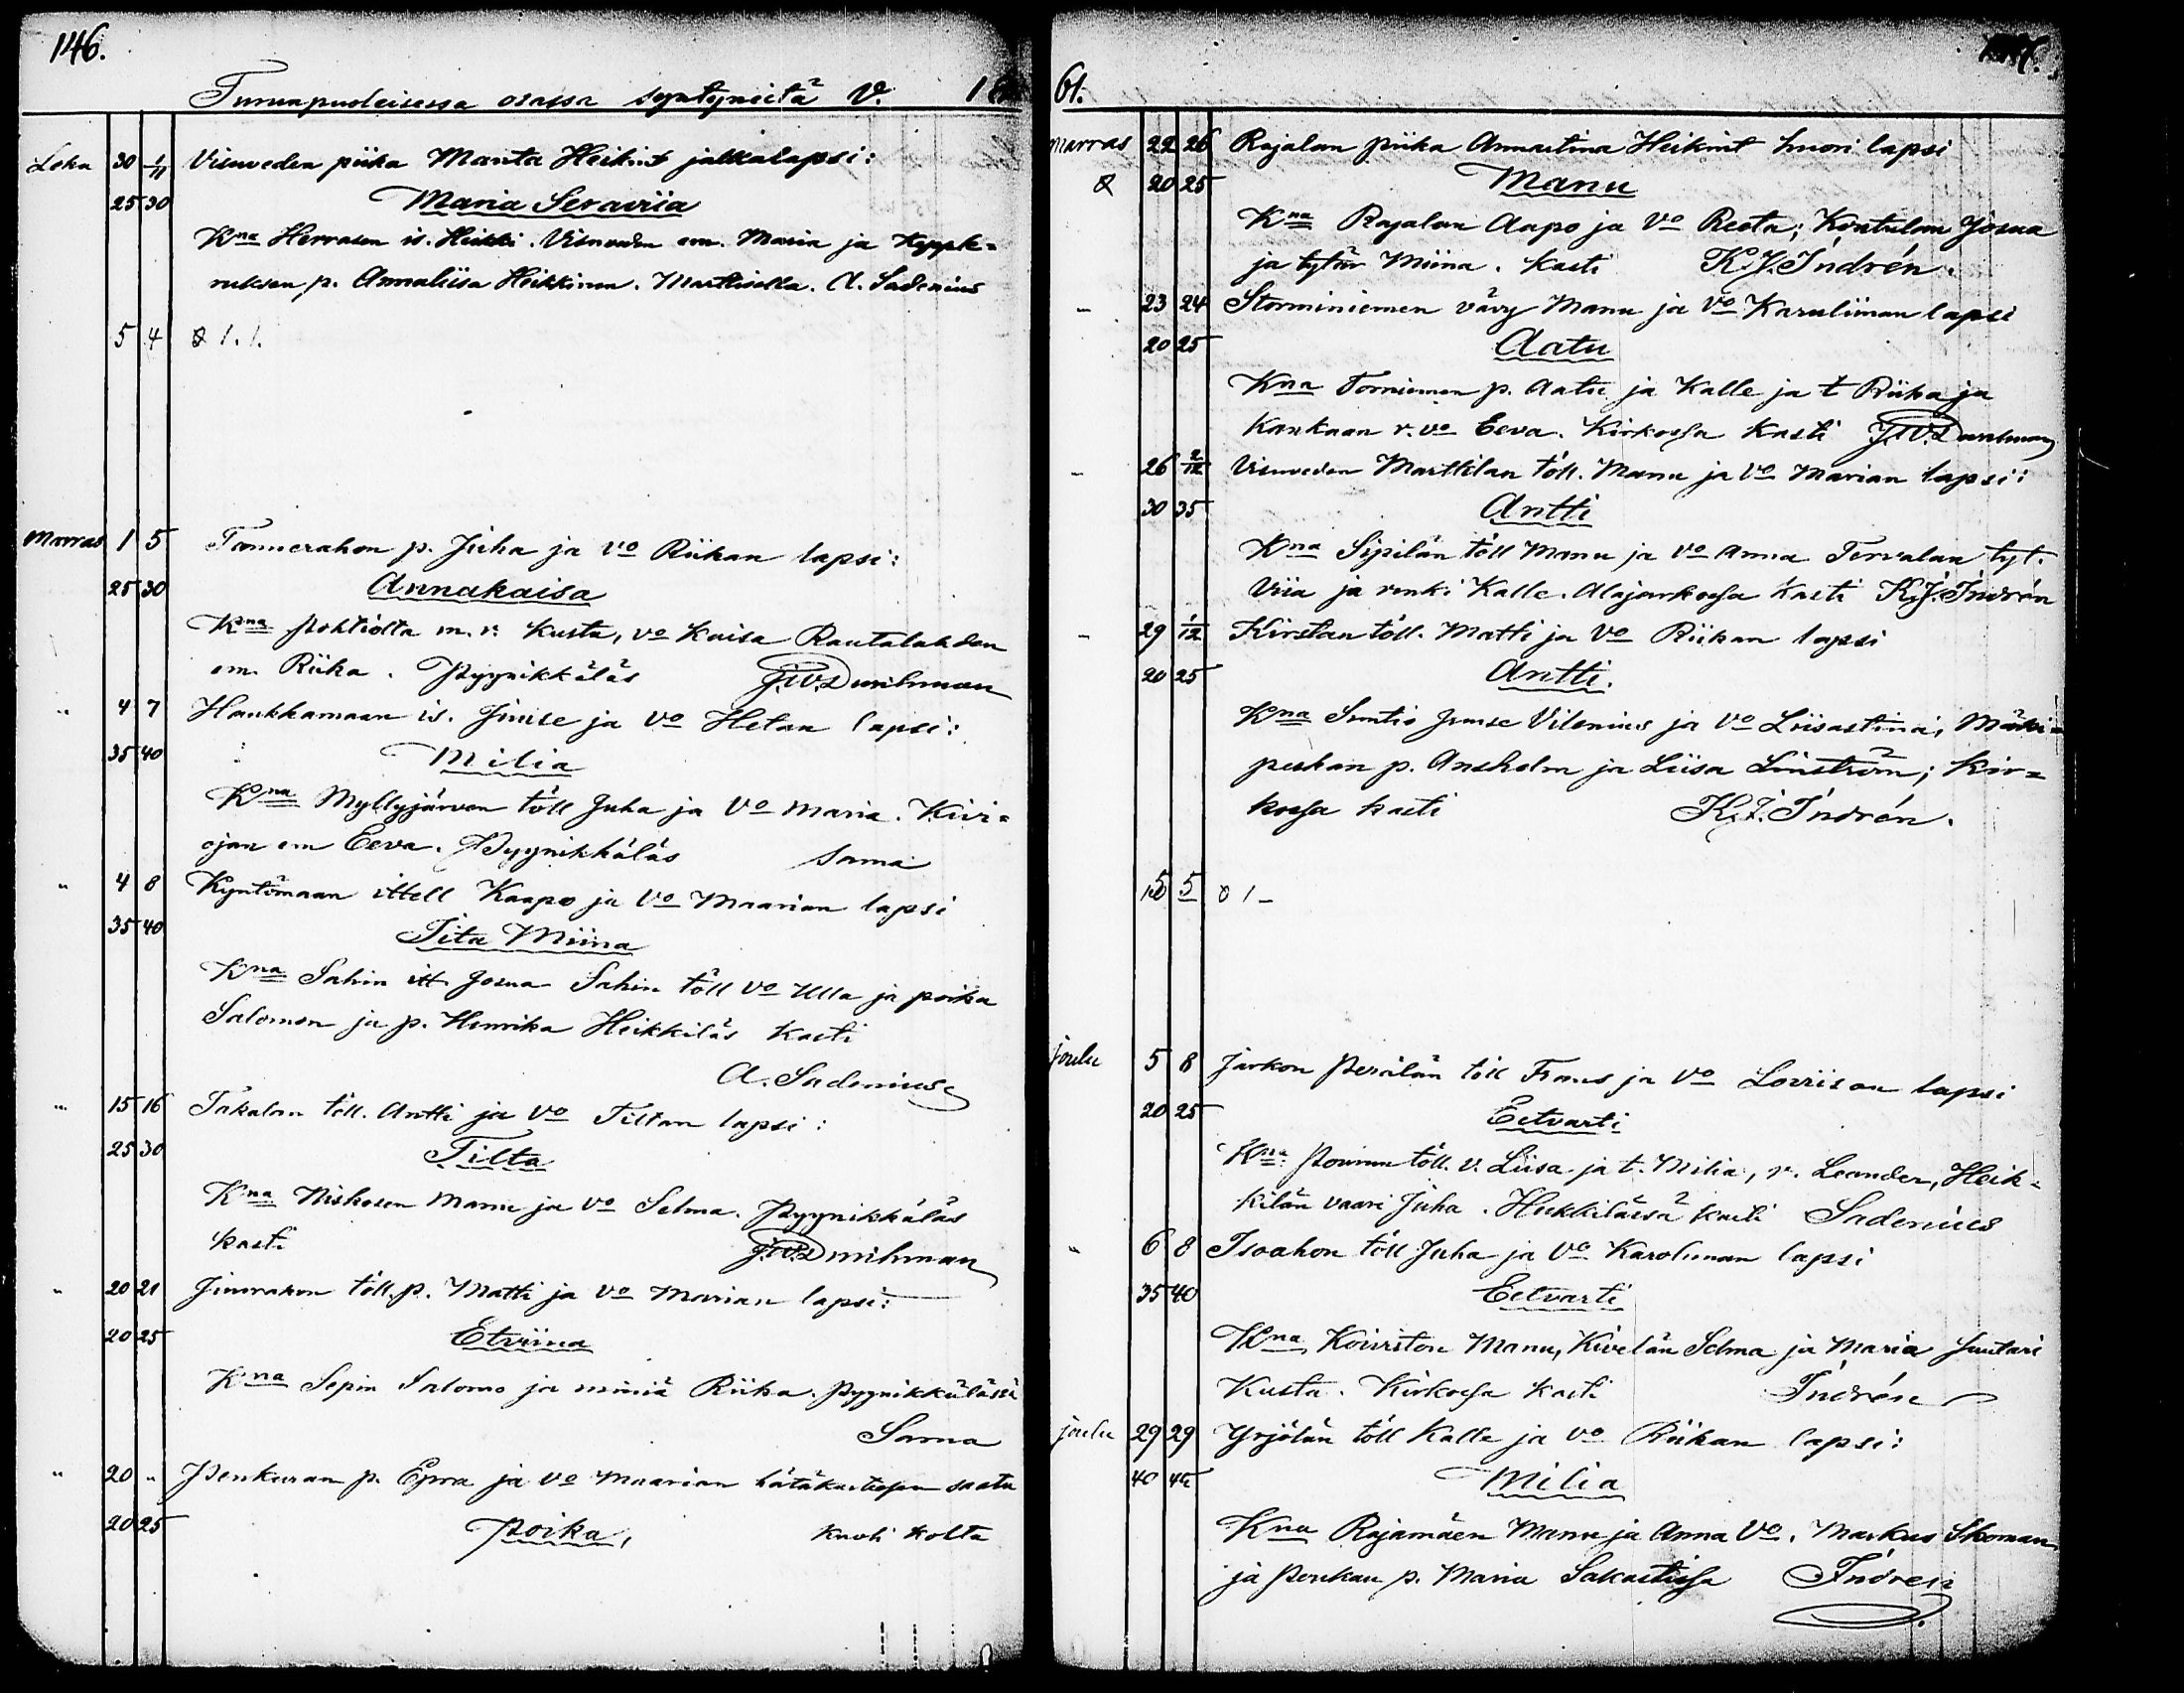 146.
Turunpuoleisessa osassa syntyneitä v. 18
Loka 30 1/11 Visuveden piika Manta Heikint jalkalapsi:
25 30 Maria Seraviia
Kna Herrasen is. Heikki. Visuveden em. Maria ja
p. Annaliisa Heikkinen. Marttisella. A. Sadenius
5 4
Marras 1 5 Tannerahon p. Juha ja vo Riikan lapsi:
25 30 Annakaisa
Kna Pohtiolta m. r. Kusta, vo Kaisa Rautalahden
em. Riika. Pyynikkäläs J.W. Durchman
" 4 7 Haukkamaan is. Juuse ja vo Hetan lapsi:
35 40 Milia
Kna Myllyjärven töll Juha ja Vo Maria. Kivi=
ojan em Eeva. Pyynikkäläs Sama
" 4 8 Kyntömaan ittell Kaapo ja Vo Maarian lapsi
35 40 Iita Miina
Kna Sahin itt Josua Sahin töll vo Ulla ja poika
Salomon ja p. Henrika Heikkiläs kasti
A. Sadenius
" 15 16 Takalan töll. Antti ja vo Tiltan lapsi:
25 30 Tilta
Kna Niskosen Manu ja vo Selma. Pyynikkäläs
kasti J.W. Durchman
" 20 21 töll. p. Matti ja vo Marian lapsi:
20 25 Etviina
Kna Sepin Salomo ja miniä Riika. Pyynikkälässä
Sama
" 20 " Penkuran p. Epra ja vo Maarian hätäkasteen saatu
20 25 Poika, kuoli kolta
61.
Marras 22 26 Rajalan piika Annastina Heikint huori lapsi
20 25 Manu
Kna Rajalan Aapo ja vo Reeta; Kontulan Josua
ja tytär Miina. Kasti K.J. Indrén.
" 23 24 Storminiemen vävy Manu ja vo Karuliinan lapsi
20 25 Aatu
Kna Torniemen p. Aatu ja Kalle ja t Riika ja
Kankaan r. vo Eeva. Kirkossa Kasti J.W. Durchman
" 26 2/12 Visuveden Marttilan töll. Manu ja vo Marian lapsi:
30 35 Antti
Kna Sipilän töll Manu ja vo Anna Tervalan tyt.
Viia ja renki Kalle. Kasti K.J. Indrén
" 29 1/12 Kirstan töll. Matti ja vo Riikan lapsi
20 25 Antti.
Kna Suntio Juuse Vilenius ja vo Liisastina; Mäki=
peskan p. Ansholm ja Liisa Linström; Kir=
kossa kasti K.J. Indrén.
5 5
Joulu 5 8 Järkon Perälän töll Frans ja vo Loviisan lapsi
20 25 Eetvarti
Kna töll. v. Liisa ja t. Milia, r. Leander, Heik=
kilän vaari Juha. Heikkilässä kasti Sadenius
" 6 8 Isoahon töll Juha ja vo Karolinan lapsi
35 40 Eetvarti
Kna Koiviston Manu, Kivelän Selma ja Maria Suutari
Kusta. Kirkossa kasti Indrén
joulu 29 29 Yrjölän töll Kalle ja vo Riikan lapsi:
40 45 Milia
Kna Rajamäen Manu ja Anna vo. Markus Skoman
ja Penkan p. Maria Indrén